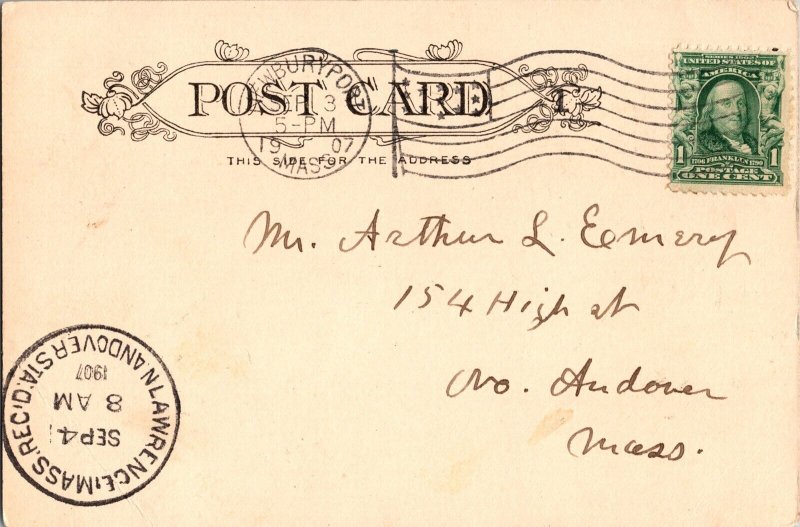 POST CARD
THIS SIDE FOR THE ADDRESS
NEWBURYPORT
SEP 3
5-PM
1907
MASS.
SERIES 1902
UNITED STATES OF
AMERICA
1706 FRANKLIN 1790
POSTAGE
1 ONE CENT 1
Mr. Arthur L. Emery
154 High st
No. Andover
Mass.
LAWRENCE, MASS. REC'D.
N ANDOVER STA.
SEP 4
8 AM
1907